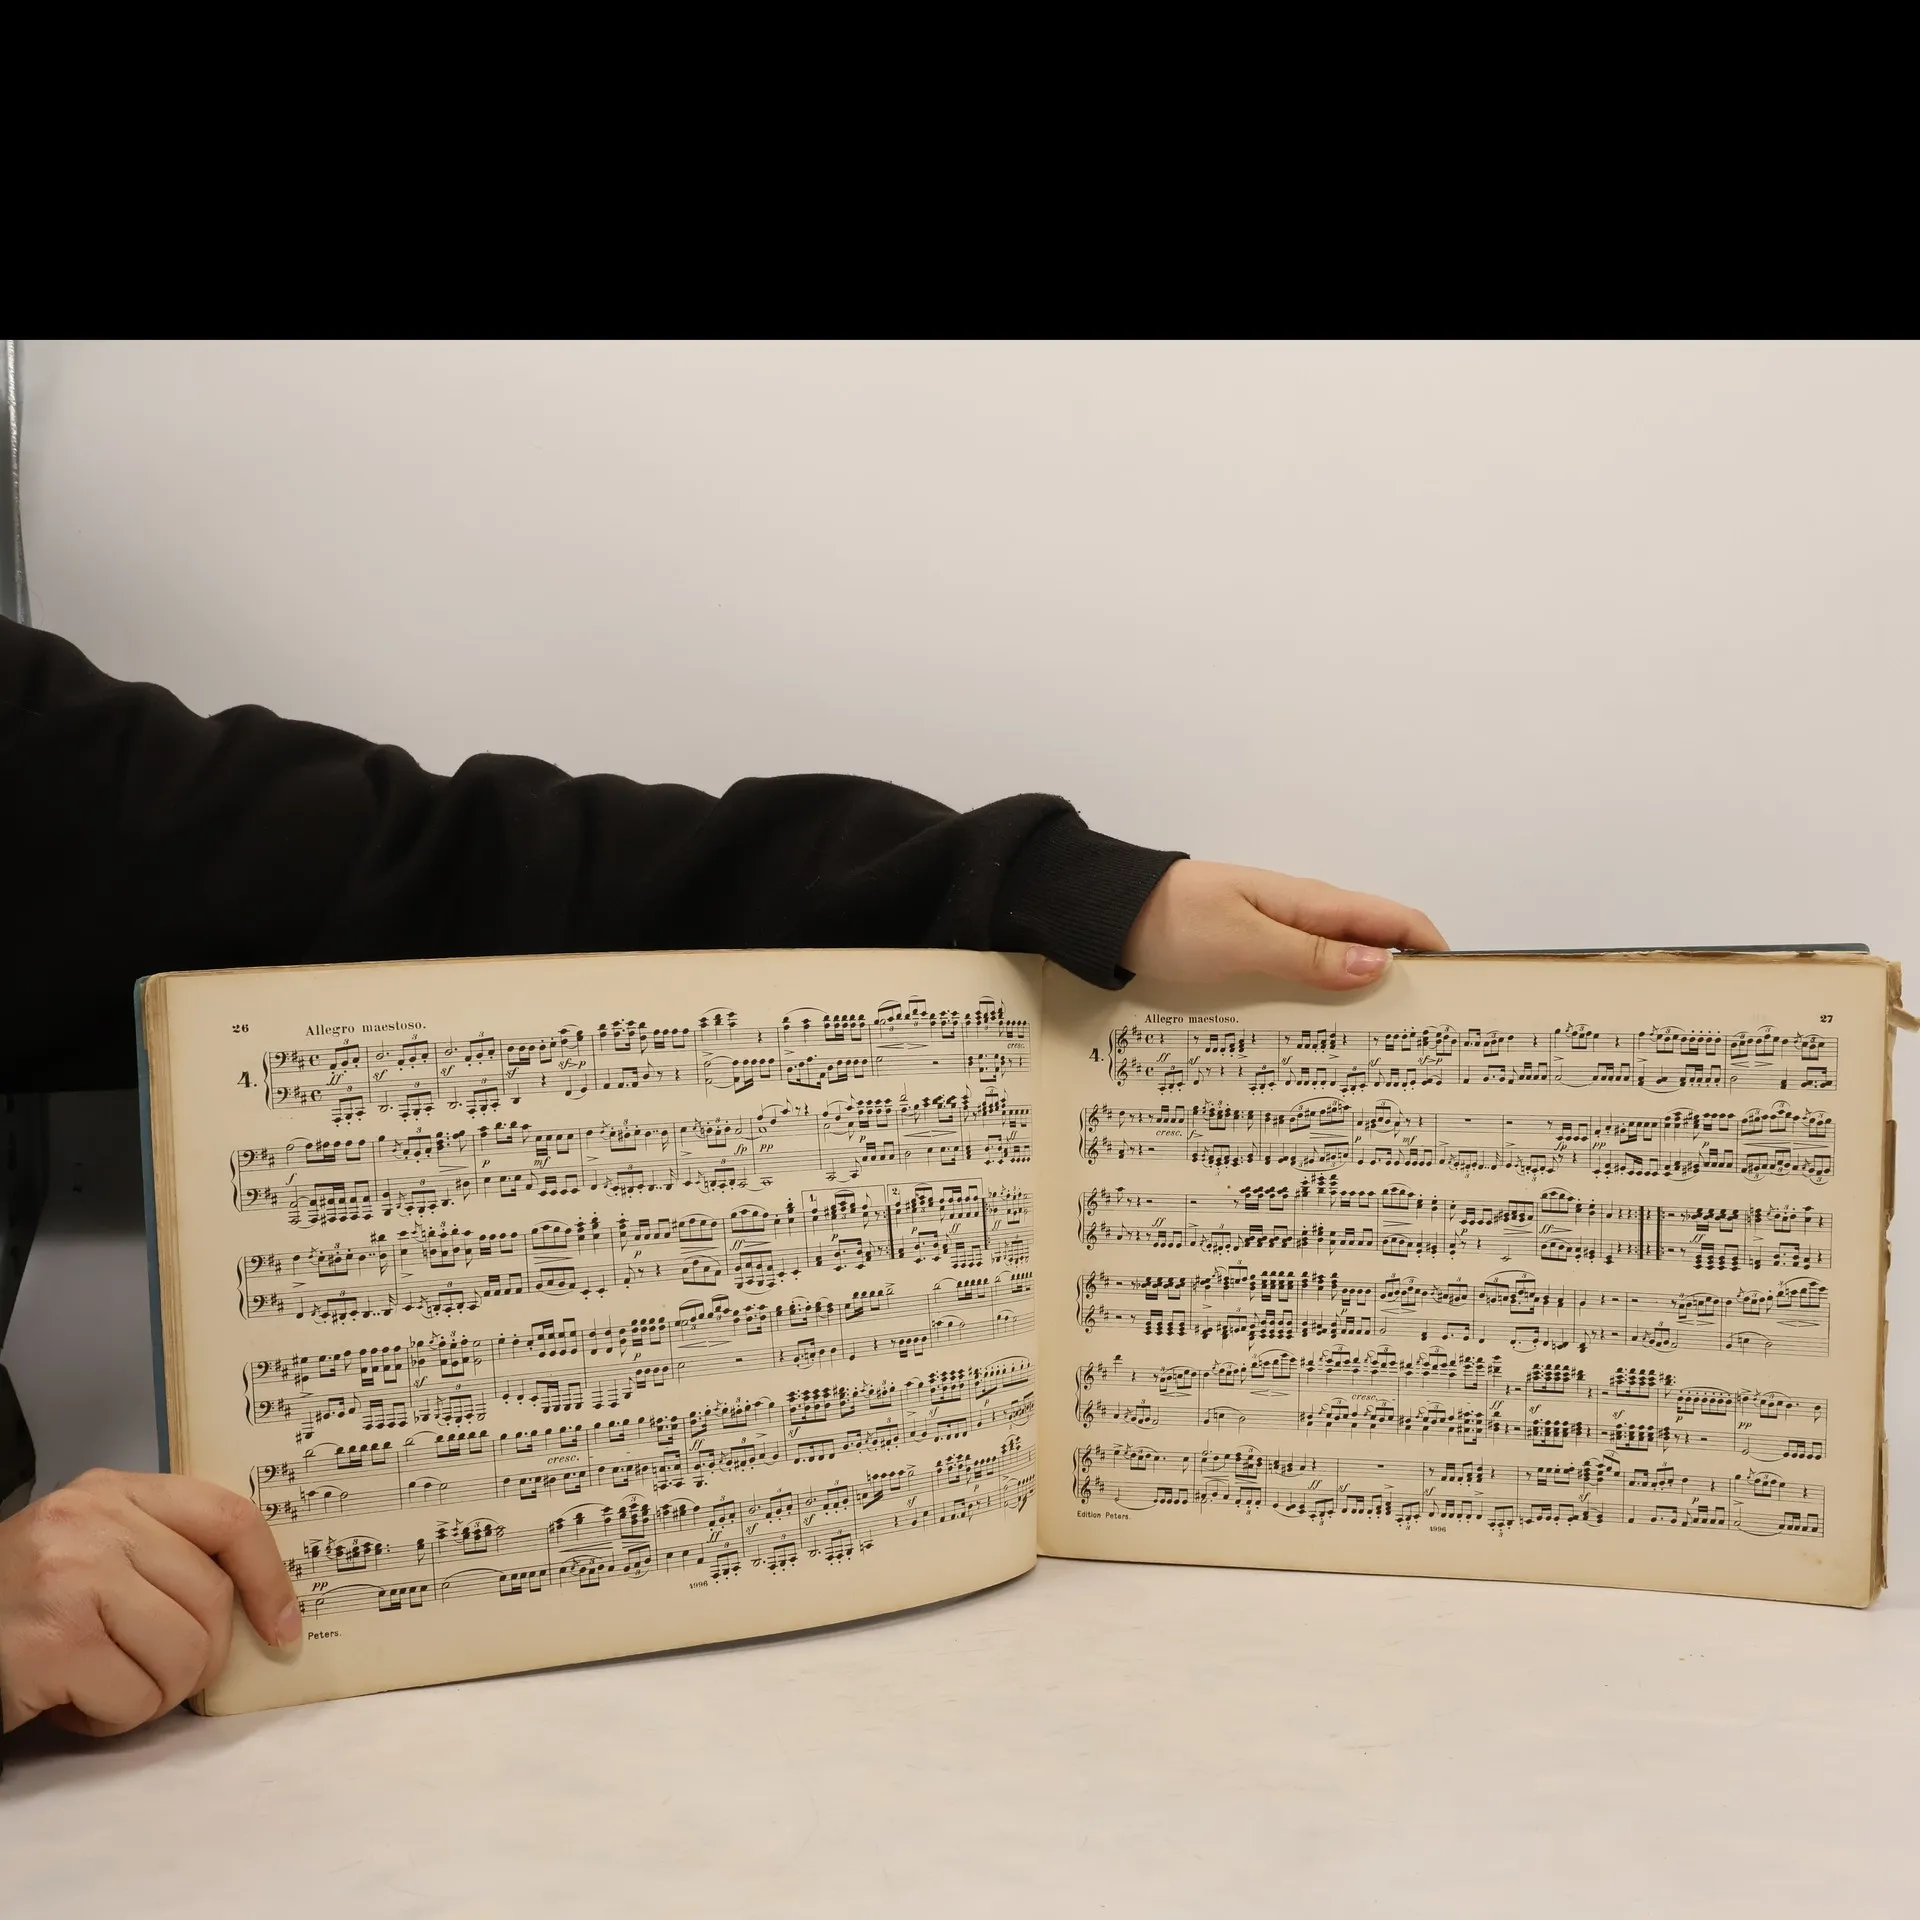 26
Allegro maestoso.
4.
ff
sf
sf
sf
sf>p
cresc.
f
p
mf
fp
pp
p
ff
p
ff
p
ff
sf
p
cresc.
ff
sf
sf
p
pp
ff
sf
sf
sf
p
4996
Peters.
27
Allegro maestoso.
4.
ff
sf
sf
sf>p
cresc.
f>
p
mf
fp
pp
p
ff
p
ff
ff
p
cresc.
ff
sf
sf
p
pp
ff
sf
sf
p
Edition Peters.
4996